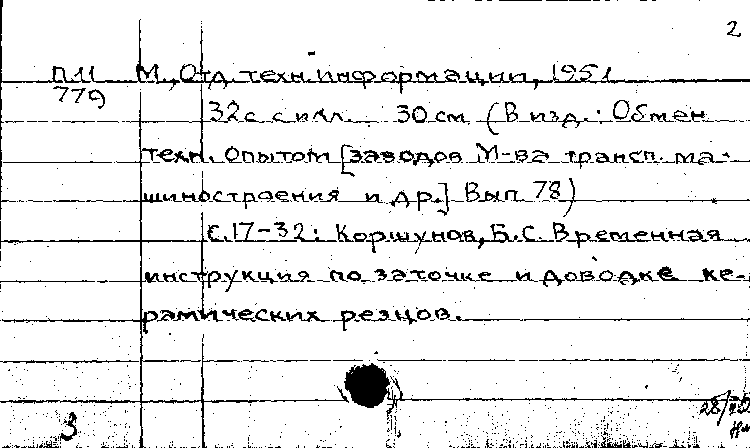 2
П11 М., Отд. техн. информации, 1951
779
32с. с илл. 30 см (В изд.: Обмен
техн. опытом [заводов М-ва трансп. ма-
шиностроения и др.] Вып. 78)
С.17-32: Коршунов, Б.С. Временная
инструкция по заточке и доводке ке-
рамических резцов.
3